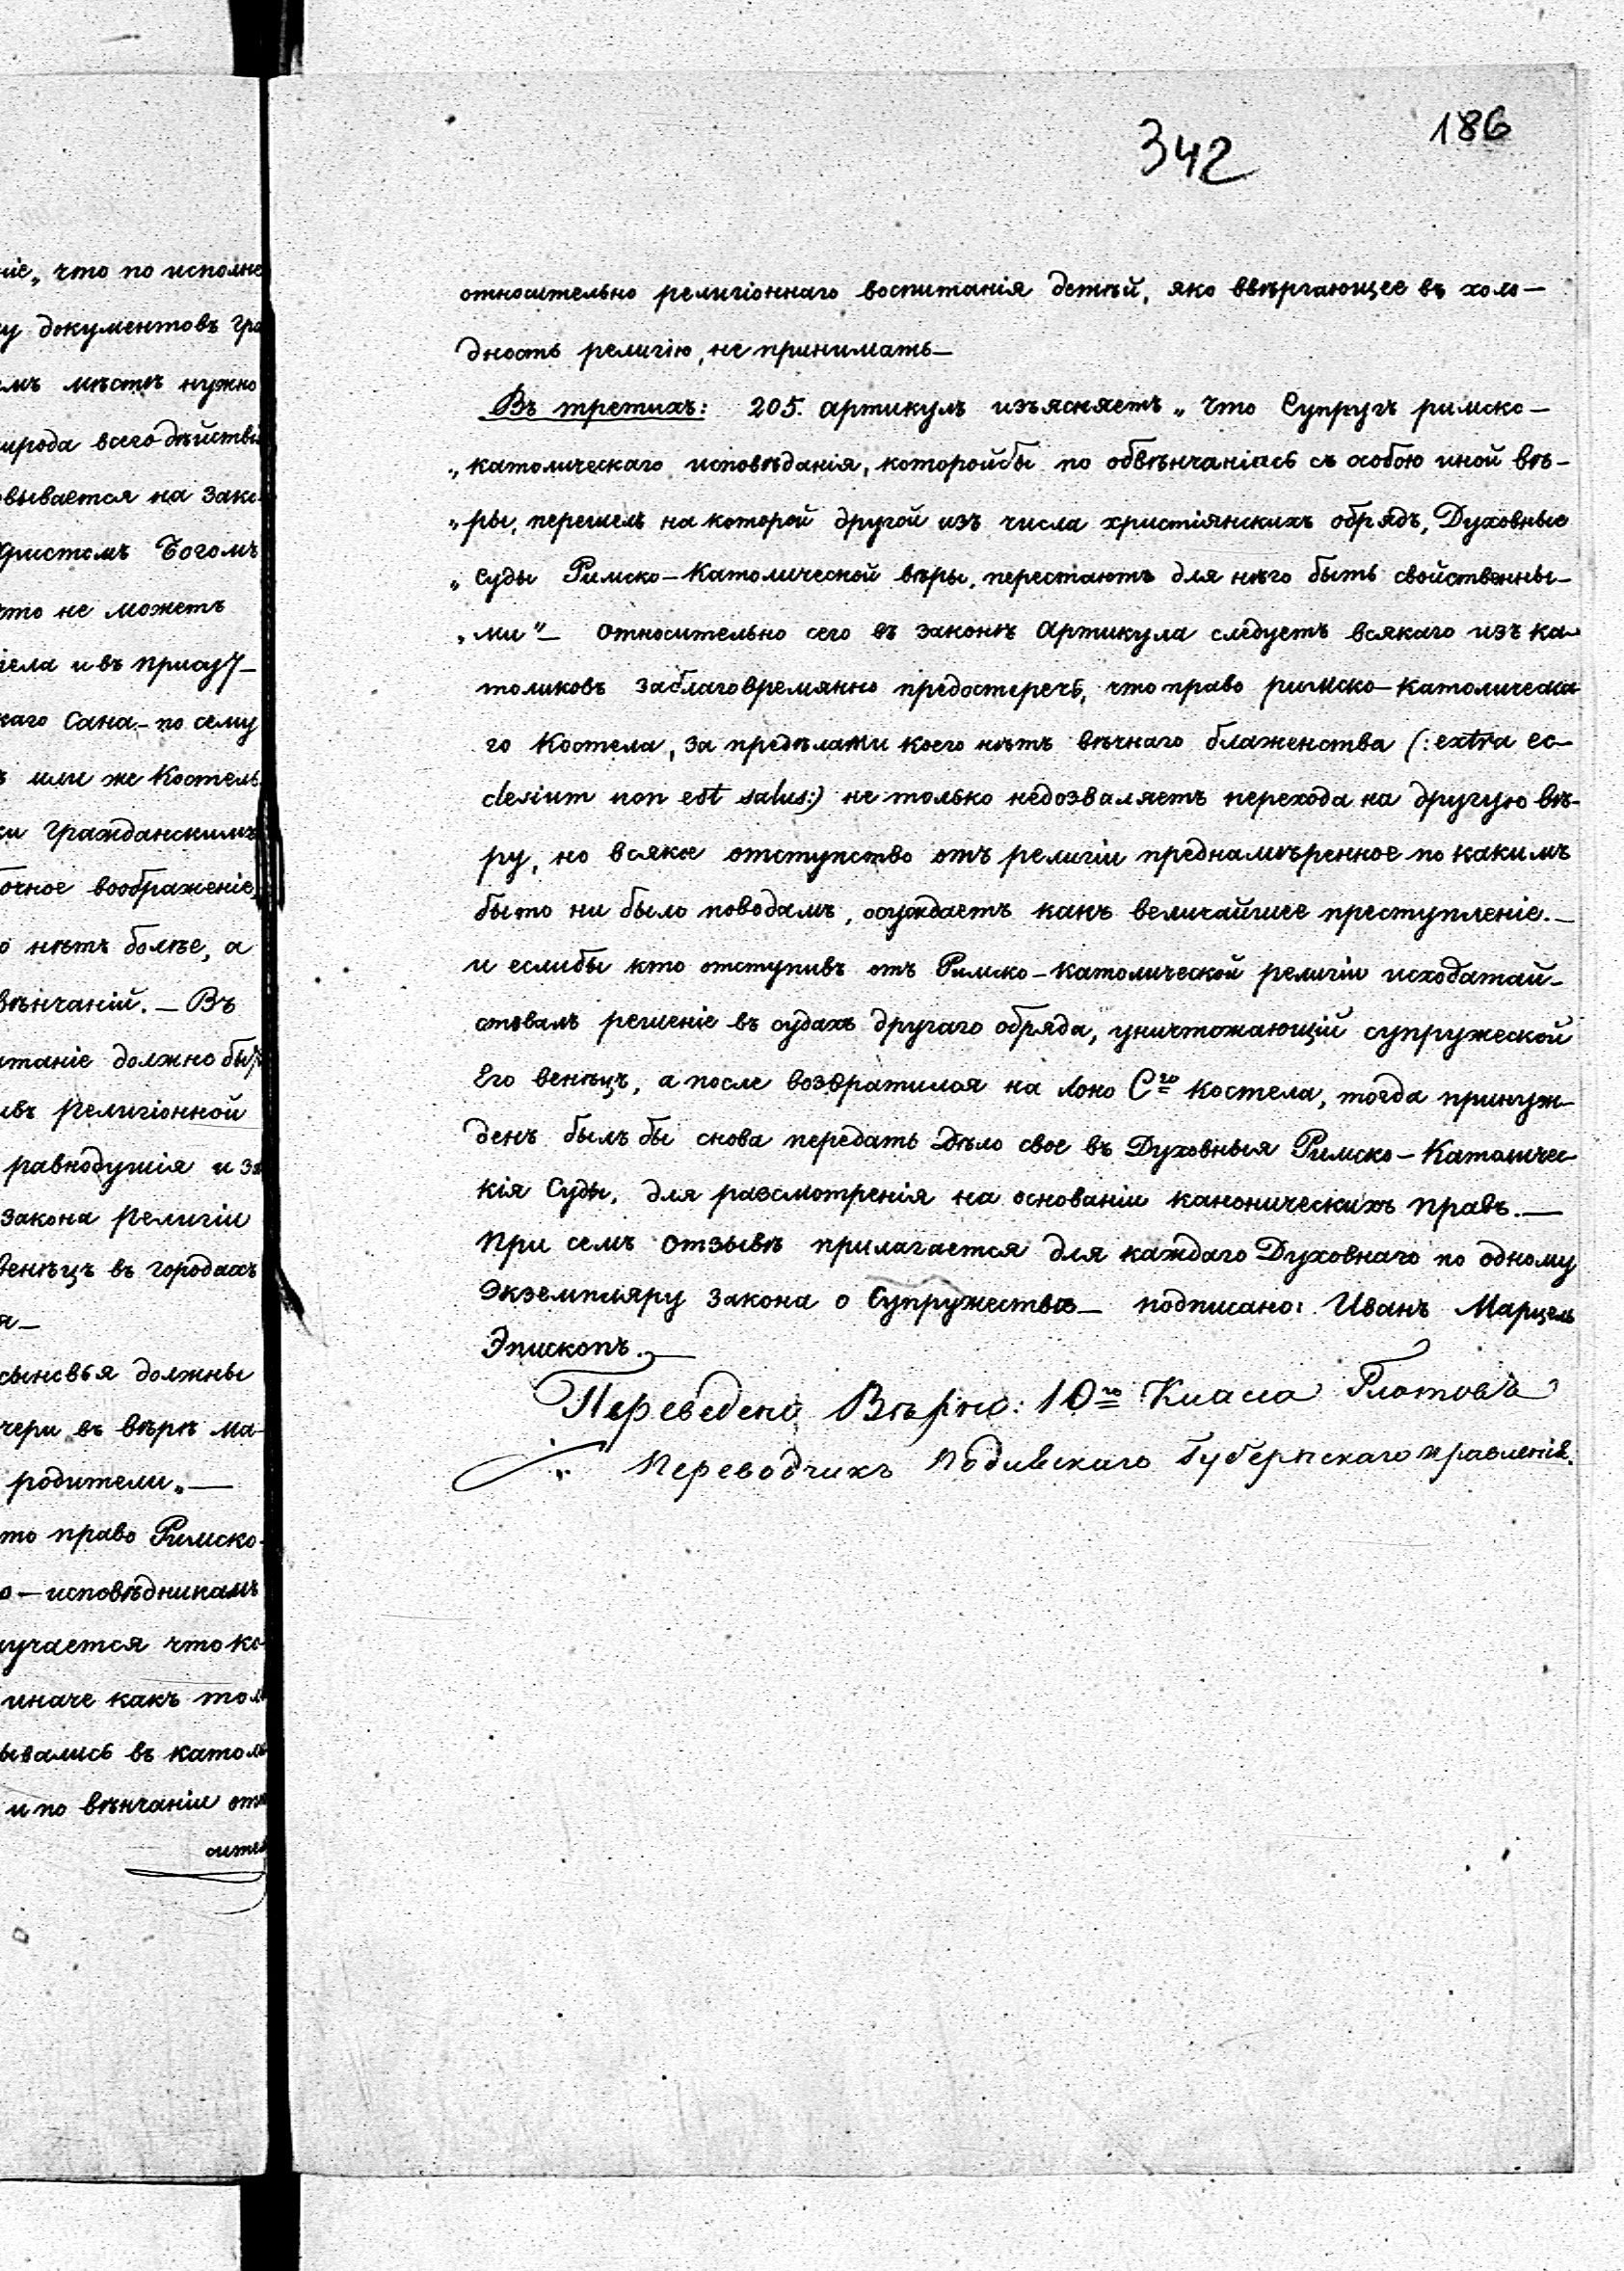 342
186
ніе„ что по исполне
у документовъ гра
мъ мѣстѣ нужно
природа всего дѣйстві
овывается на зако
Христомъ Богомъ
что не можетъ
тела и въ прису7
каго Сана – по сему
ъ или же Костелъ
ки гражданскимъ
бочное воображеніе,
о нѣтъ болѣе, а
вѣнчаній. – Въ
итаніе должно бы7
ивъ религіонной
равнодушія и за
закона религіи
венѣцъ въ городахъ
я –
сыновья должны
чери въ вѣрѣ ма-
родители„ —
то право Римско-
о – исповѣдникамъ
лучается что ко
иначе какъ тол
ывались въ катол
и по вѣнчаніи отн
сител
относительно религіоннаго воспитанія детѣй, яко ввѣргающее въ холо –
дность религію, не принимать –
Въ третихъ: 205. артикулъ изъясняетъ „ что Супругъ римско –
„ католическаго исповѣданія, которойбы по обвѣнчаніась съ особою иной вѣ-
„ ры, перешелъ на которой другой изъ числа христіянскихъ обрядъ, Духовные
„ Суды Римско – Католической вѣры, перестаютъ для нѣго быть свойственны-
„ ми“ – относительно сего въ законѣ Артикула следуетъ всякаго изъ ка-
толиковъ заблаговремянно предостеречь, что право римско – католическа
го Костела, за предѣлами коего нѣтъ вѣчнаго блаженства (: extra ec-
clesium non est salus:) не только недозваляетъ перехода на другую вѣ-
ру, но всякое отступство отъ религіи преднамѣренное по какимъ
быто ни было поводамъ, осуждаетъ какъ величайшее преступленіе. –
и еслибы кто отступивъ отъ Римско – католической религіи исходатай-
ствовалъ решеніе въ судахъ другаго обряда, уничтожающій супружеской
Его венѣцъ, а после возвратился на лоно Сго костела, тогда принуж-
денъ былъ бы снова передать дѣло свое въ Духовныя Римско – Католичес-
кія Суды, для разсмотренія на основаніи каноническихъ правъ. —
При семъ отзывѣ прилагается для каждаго Духовнаго по одному
Экземпляру закона о Супружествѣ – подписано: Иванъ Марцелъ
Эпископъ. —
Переведено Вѣрно: 10го Класса Глотовъ
Переводчикъ Подольскаго Губернскаго Правленія.